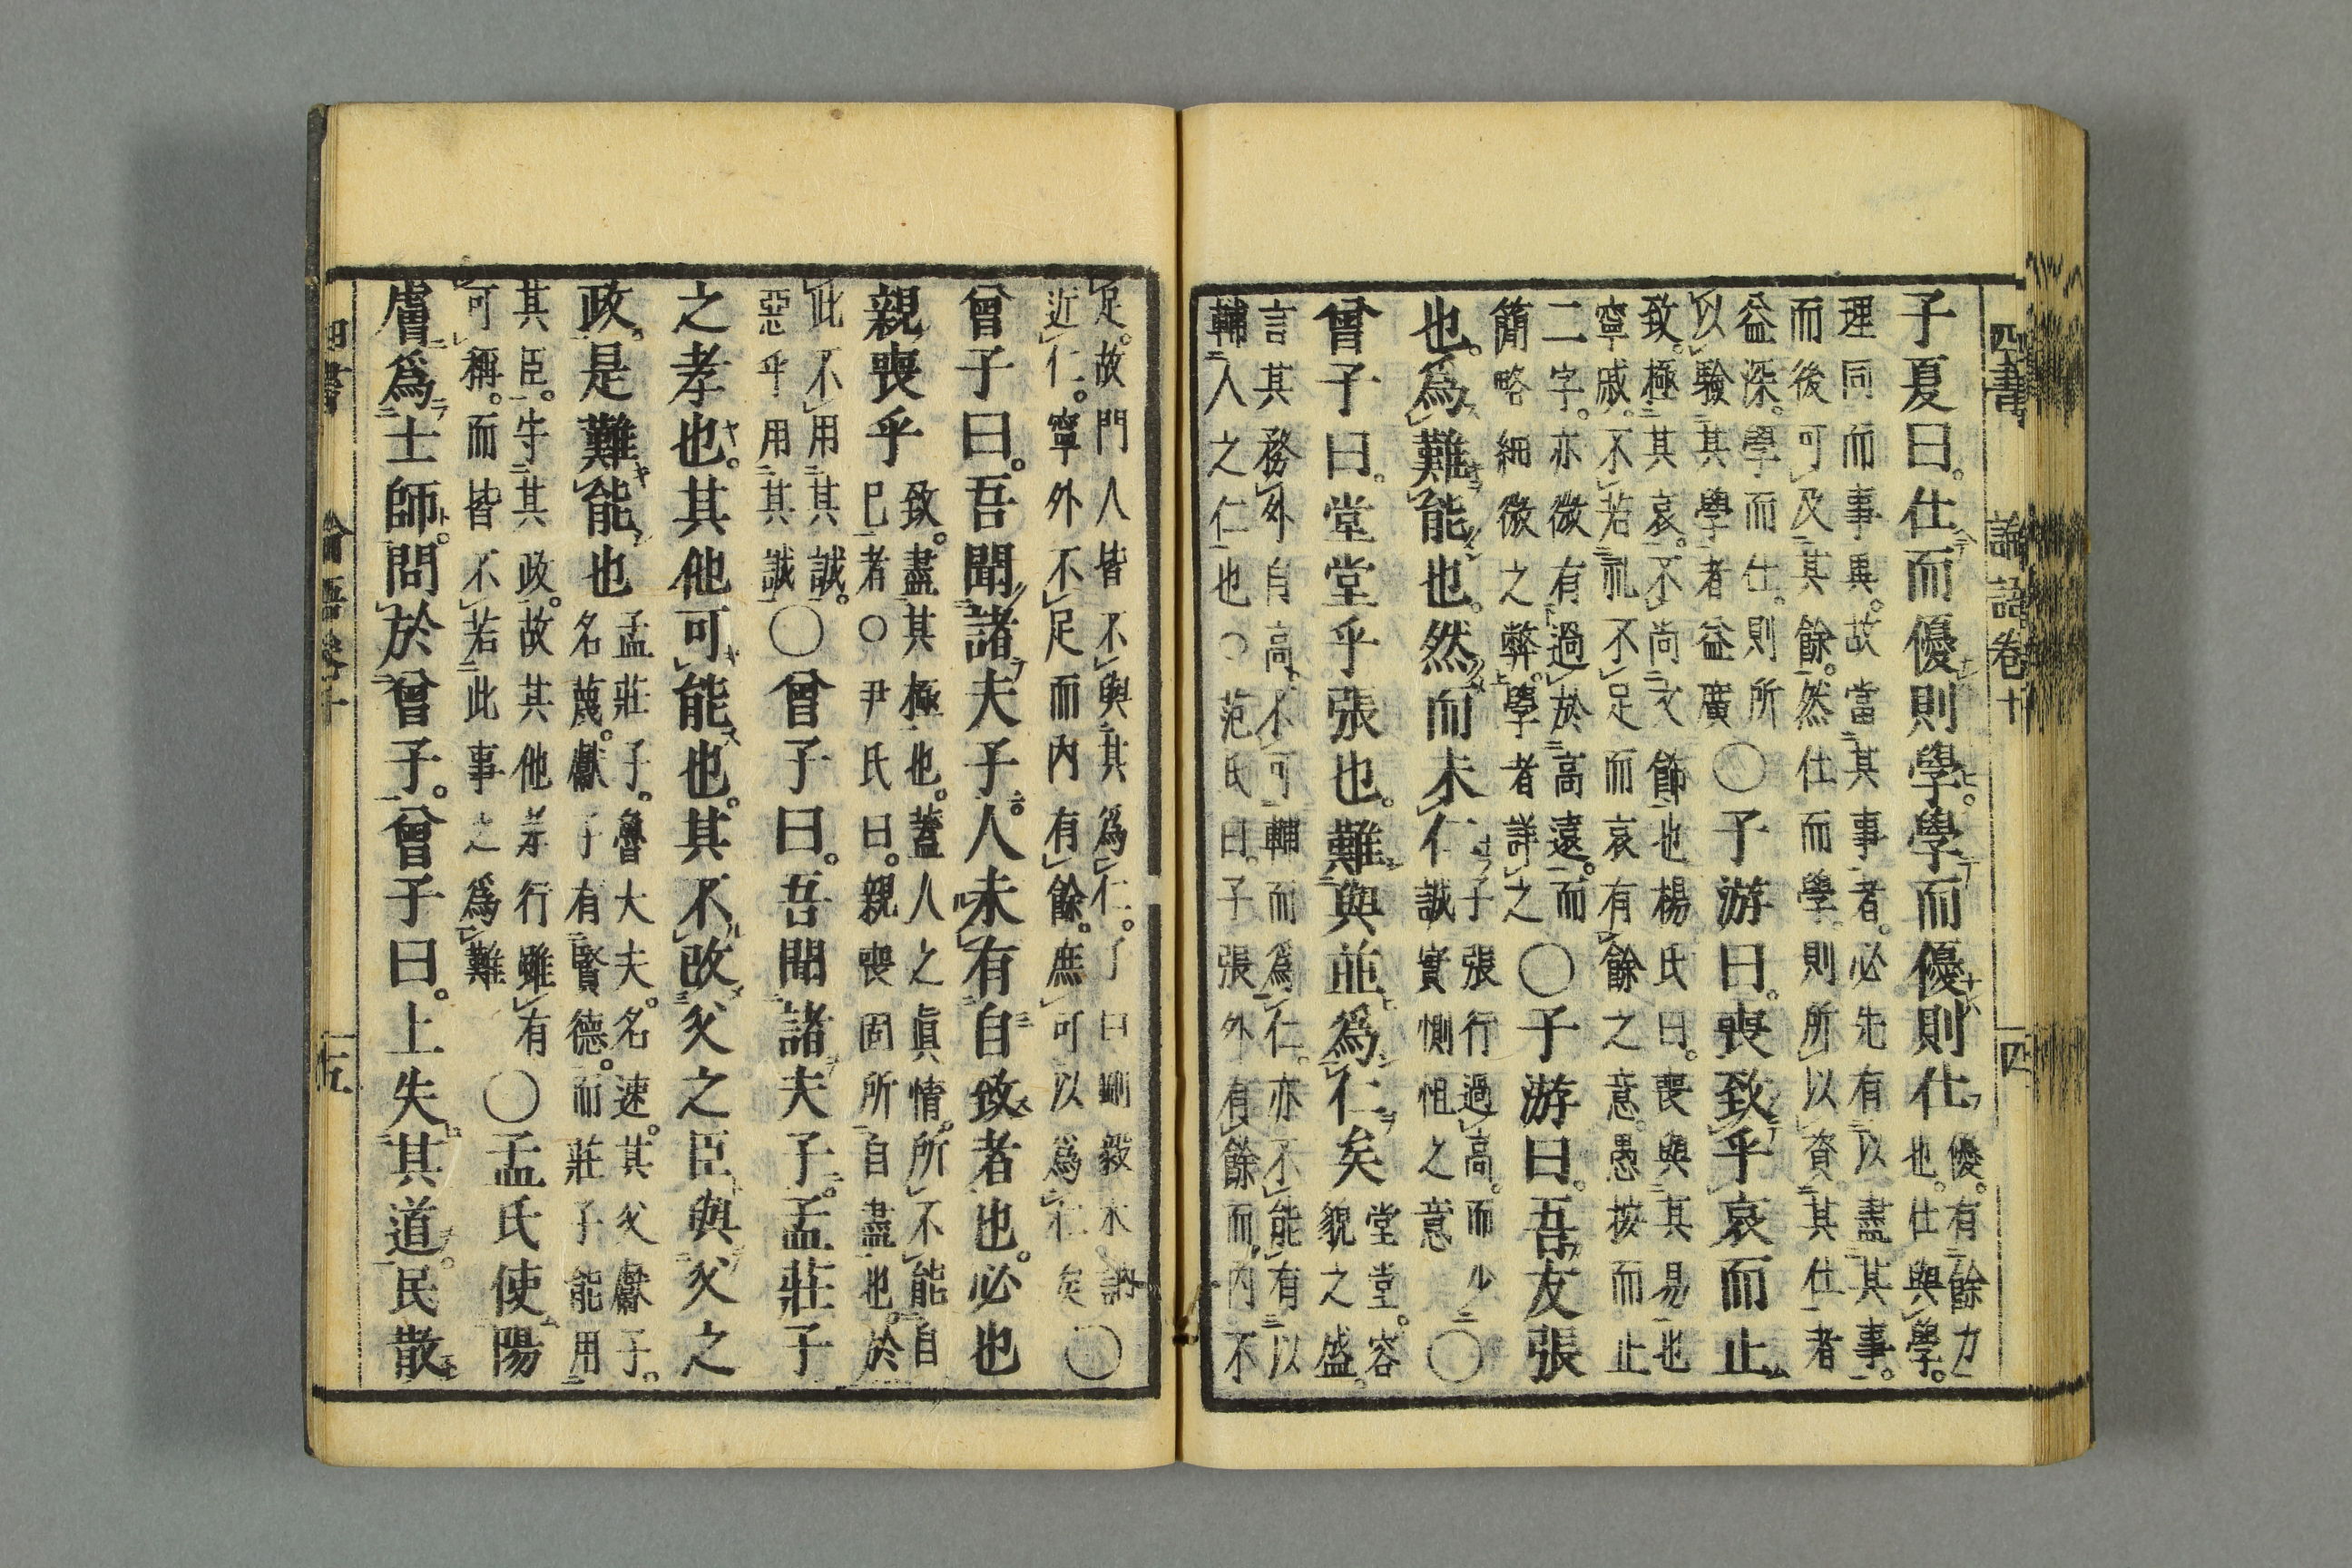 四書 論語卷十 四
子夏曰。仕而優則學。學而優則仕
優。有餘力
也。仕與學。
理同而事異。故當其事者。必先有以盡其事。
而後可及其餘。然仕而學。則所以資其仕者
益深。學而仕。則所
以驗其學者益廣
○子游曰。喪致乎哀而止
致。極其哀。不尚文飾也楊氏曰。喪與其易也
寧戚。不若礼不足而哀有餘之意。愚按而止
二字。亦微有過於高遠。而
簡略細微之弊。學者詳之
○子游曰。吾友張
也。爲難能也。然而未仁
子張行過高。而少
誠實惻怛之意
○
曾子曰。堂堂乎張也。難與並爲仁矣
堂堂。容
貌之盛。
言其務外自高。不可輔而爲仁。亦不能有以
輔人之仁也○范氏曰。子張外有餘而内不
足。故門人皆不與其爲仁。子曰剛毅木訥
近仁。寧外不足而内有餘。庶可以爲仁矣
○
曾子曰。吾聞諸夫子。人未有自致者也。必也
親喪乎
致。盡其極也。蓋人之眞情。所不能自
已者○尹氏曰。親喪固所自盡也。於
此不用其誠。
惡乎用其誠
○曾子曰。吾聞諸夫子。孟莊子
之孝也。其他可能也。其不改父之臣與父之
政。是難能也
孟莊子。魯大夫。名速。其父獻子。
名蔑。獻子有賢德。而莊子能用
其臣。守其政。故其他孝行雖有
可稱。而皆不若此事之爲難
○孟氏使陽
膚爲士師。問於曾子。曾子曰。上失其道。民散
四書 論語卷十 十五